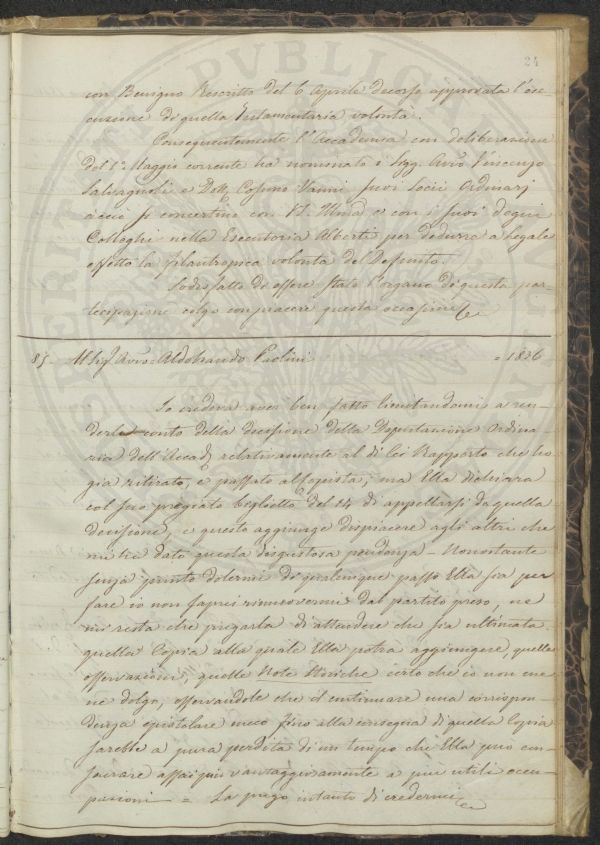 24
con Benigno Rescritto del 6 Aprile decorso approvata l'ese-
cuzione di quella Testamentaria volontà.
Conseguentemente l'Accademia con deliberazione
del 1° Maggio corrente ha nominato i Sigg. Avvo Vincenzo
Salvagnoli e Dottr Cosimo Vanni suoi Socii Ordinarj
acciò si concertino con VS. Illma e con i suoi degni
Colleghi nella Esecutoria Alberti per dedurre a legale
effetto la filantropica volontà del Defunto.
Sodisfatto di essere stato l'organo di questa par-
tecipazione colgo con piacere questa occasione &c
85 Al Sigr Avvo Aldobrando Paolini = 1836
Io credeva aver ben fatto limitandomi a ren-
derle conto della decisione della Deputazione Ordina-
ria dell'Accadа relativamente al di Lei Rapporto che ho
già ritirato, e passato al Copista; ma Ella dichiara
col suo pregiato biglietto del 14 di appellarsi da quella
decisione, e questo aggiunge dispiacere agli altri che
mi ha dato questa disgustosa pendenza - Nonostante
senza punto dolermi di qualunque passo Ella sia per
fare io non saprei rimuovermi dal partito preso, ne
mi resta che pregarla di attendere che sia ultimata
quella Copia alla quale Ella potrà aggiungere, quelle
osservazioni, quelle Note Storiche certo che io non me
ne dolgo, osservandole che il continuare una corrispon
denza epistolare meco fino alla consegna di quella Copia
sarebbe a pura perdita di un tempo che Ella può con-
sacrare assai più vantaggiosamente a più utili occu-
pazioni = La prego intanto di credermi &c